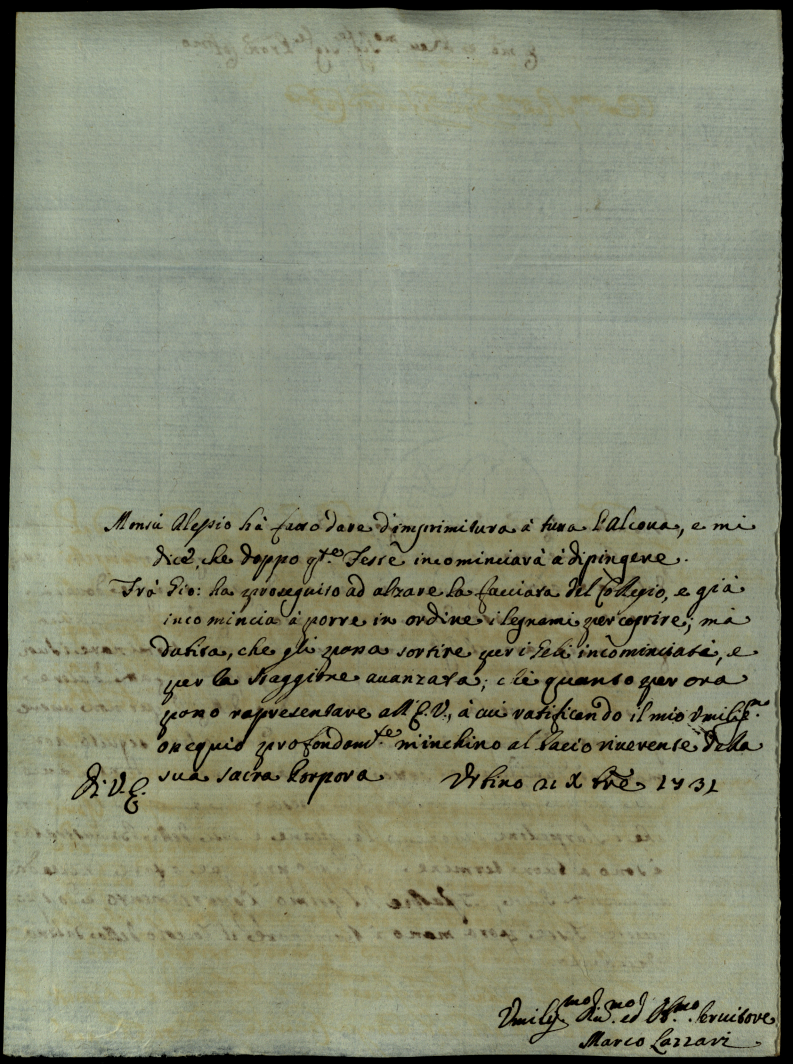 Monsù Alessio hà fatto dare d'imprimitura à tutta l'Alcova, e mi
dice, che doppo q.te Feste incominciarà à dipingere.
Frà Gio: ha proseguito ad alzare la facciata del Collegio, e già
incomincia à porre in ordine i legnami per coprire; mà
dubita, che gli possa sortire per i Geli incominciati, e
per la staggione avanzata; che quanto per ora
posso rapresentare all'E.V., à cui ratificando il mio Umiliss.mo
ossequio profondam.te m'inchino al bacio riverente della
sua sacra Porpora
Di V. E.
Urbino 21 Xbre 1731
Umiliss.mo Div.mo ed Obb.mo Servitore
Marco Lazzari